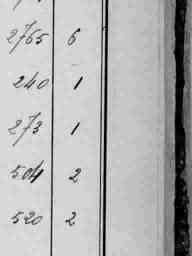 2765 6
240 1
273 1
504 2
520 2